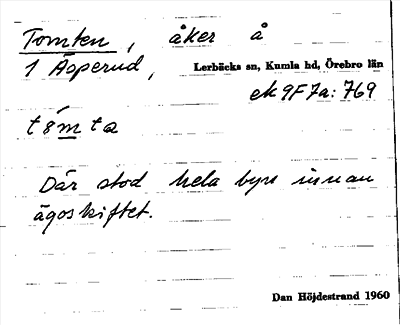 Tomten, åker å
1 Åsperud,
Lerbäcks sn, Kumla hd, Örebro län
ek 9F7a: 769
tómta
Där stod hela byn innan
ägoskiftet.
Dan Höjdestrand 1960